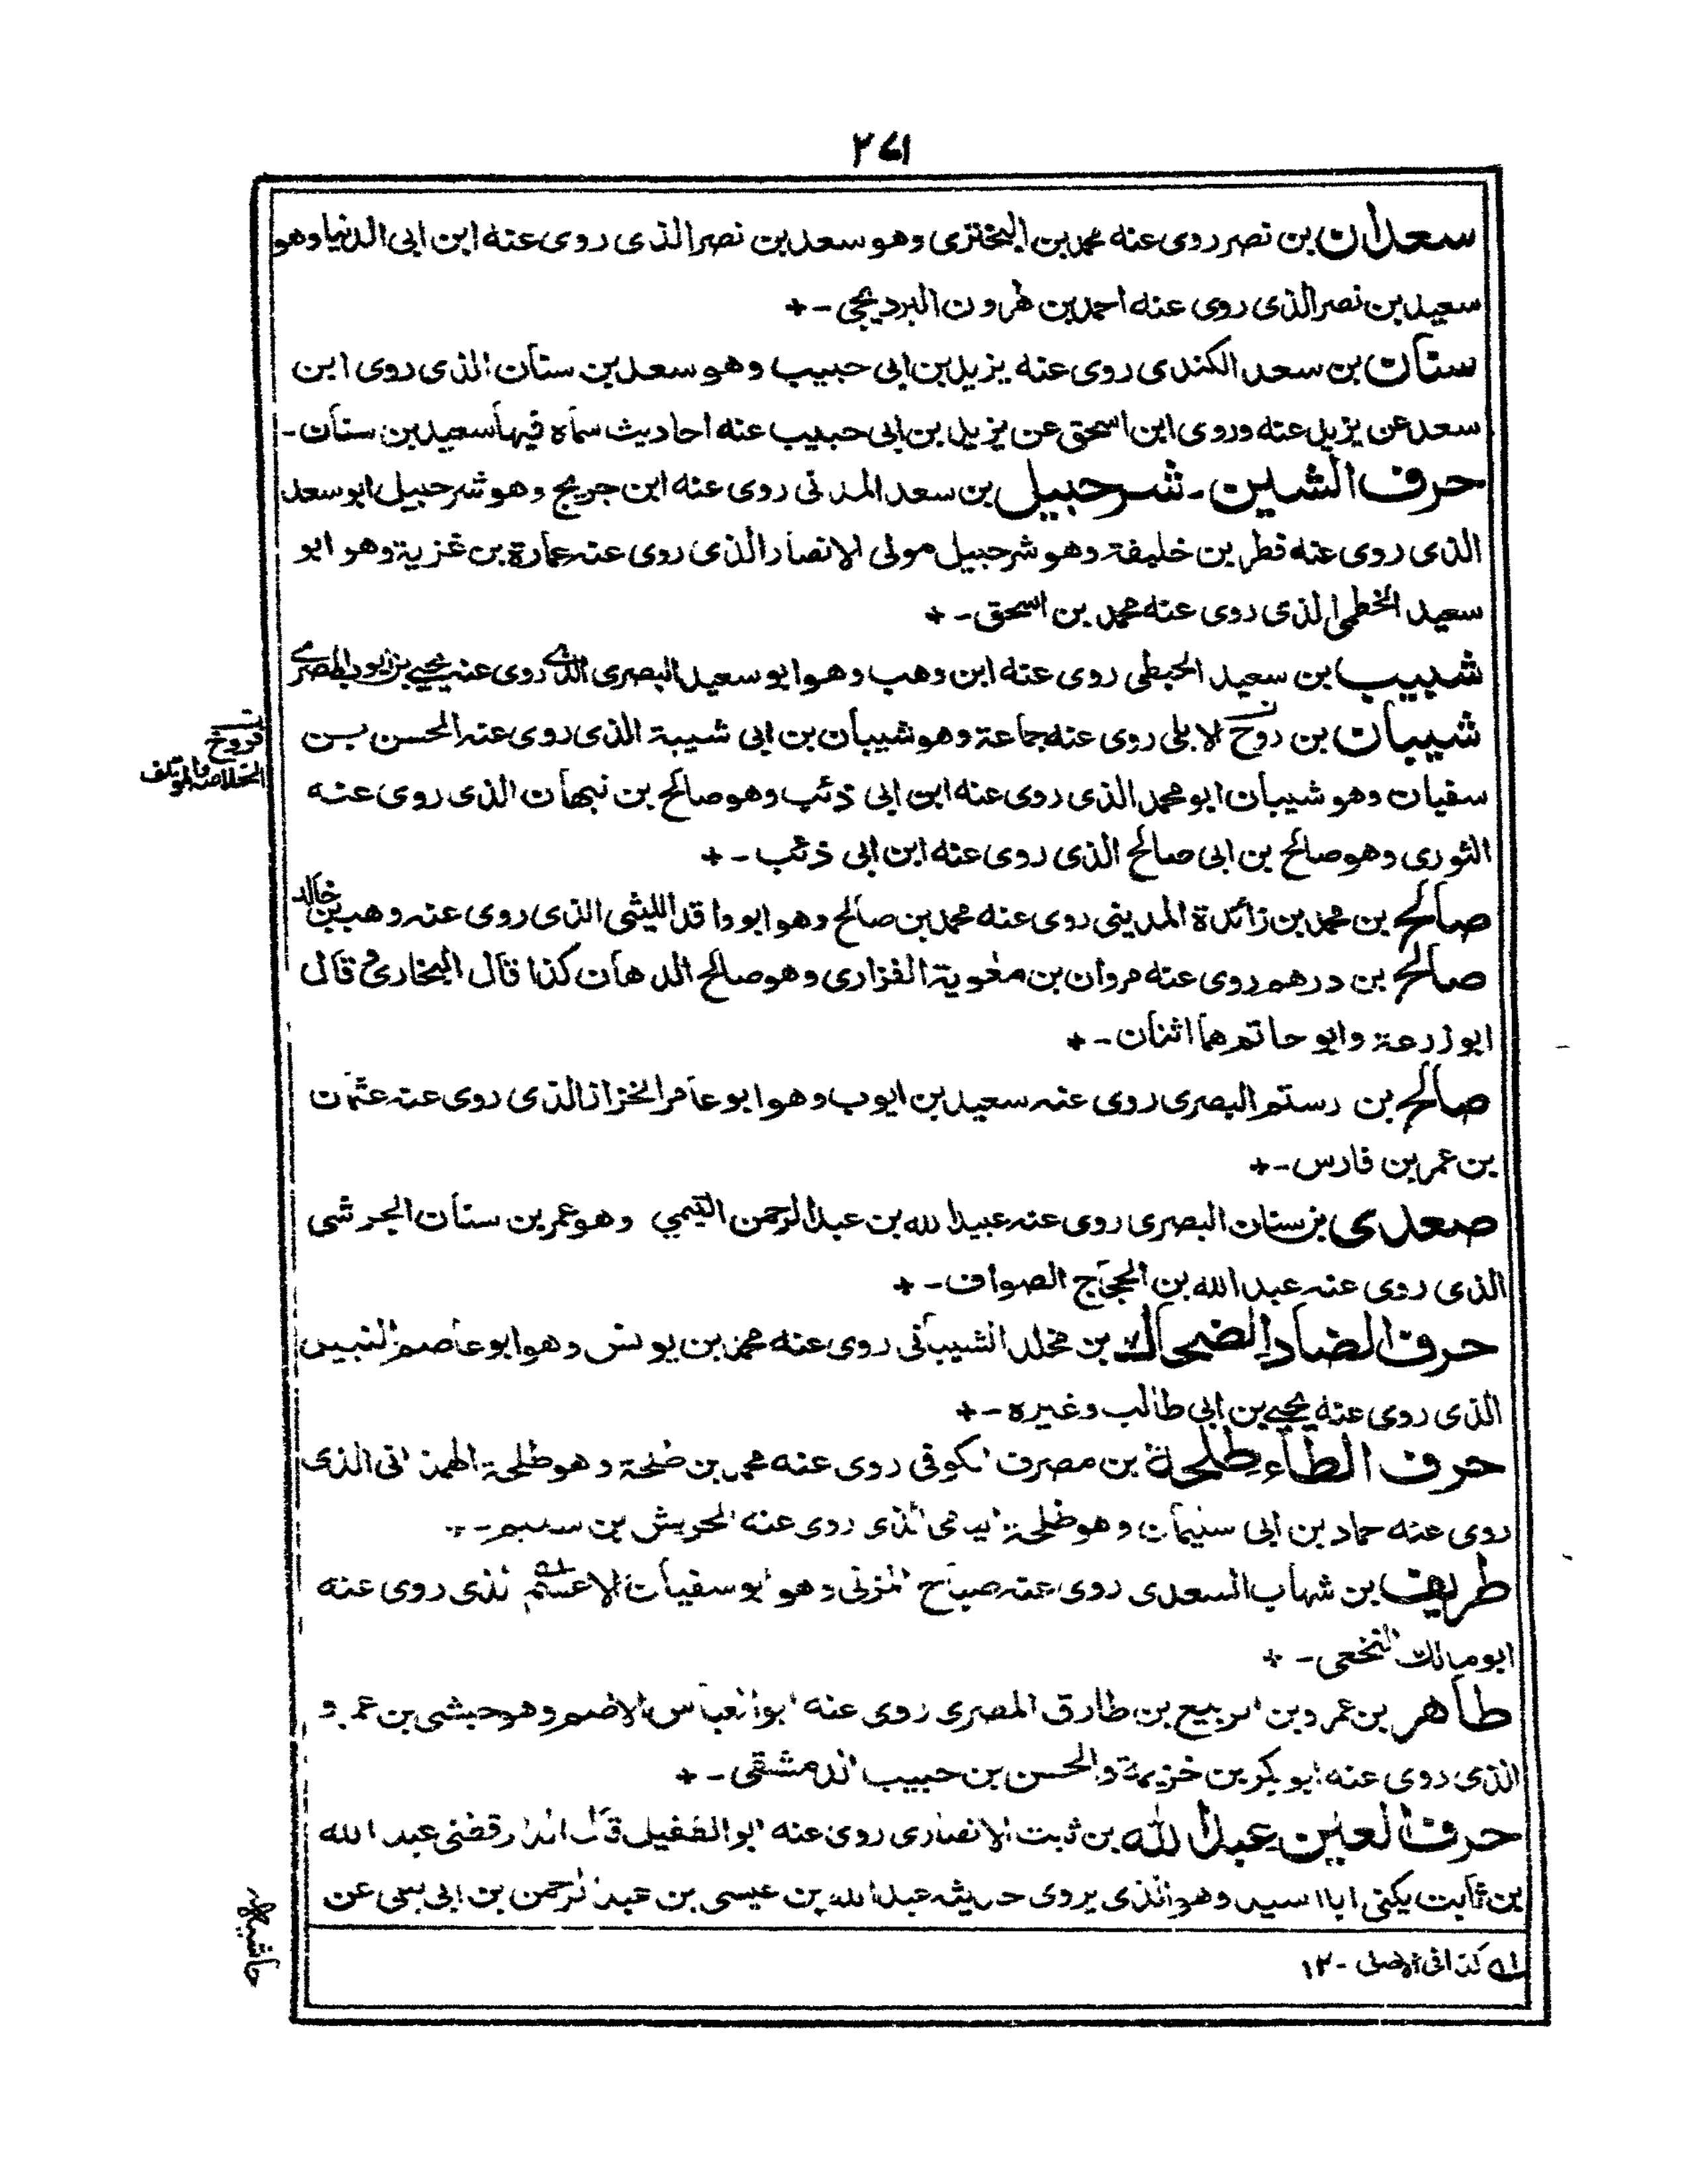 ٢٧١
سعدان بن نصر روى عنه محمد بن البختري وهو سعد بن نصر الذى روى عنه ابن ابى الدنيا وهو
سعيد بن نصر الذى روى عنه احمد بن هٰرون البرديجى -+
سنان بن سعد الكندى روى عنه يزيد بن ابى حبيب وهو سعد بن سنان الذى روى ابن
سعد عن يزيد عنه وروى ابن اسحق عن يزيد بن ابى حبيب عنه احاديث سماه فيها سعيد بن سنان -
حرف الشين - شرحبيل بن سعد المدنى روى عنه ابن جريج وهو شرحبيل ابو سعد
الذى روى عنه فطر بن خليفة وهو شرحبيل مولى الانصار الذى روى عنه عمارة بن غزية وهو ابو
سعيد الخطمى الذى روى عنه محمد بن اسحق -+
شبيب بن سعيد الحبطى روى عنه ابن وهب وهو ابو سعيد البصرى الذى روى عنه يحيى بن ايوب المصرى
شيبان بن روح الابلى روى عنه جماعة وهو شيبان بن ابى شيبة الذى روى عنه الحسن بن
فروخ
الخلاصة والمؤتلف
سفيان وهو شيبان ابو محمد الذى روى عنه ابن ابى ذئب وهو صالح بن نبهان الذى روى عنه
الثورى وهو صالح بن ابى صالح الذى روى عنه ابن ابى ذئب -+
صالح بن محمد بن زائدة المدينى روى عنه محمد بن صالح وهو ابو واقد الليثى الذى روى عنه وهب بن خالد
صالح بن درهم روى عنه مروان بن معٰوية الفزارى وهو صالح الدهان كذا قال البخارى قال
ابو زرعة وابو حاتم هما اثنان -+
صالح بن رستم البصرى روى عنه سعيد بن ايوب وهو ابو عامر الخزاز الذى روى عنه عثمٰن
بن عمر بن فارس -+
صعدى بن سنان البصرى روى عنه عبيد الله بن عبد الرحمن التيمي وهو عمر بن سنان الجرشى
الذى روى عنه عبد الله بن الحجاج الصواف -+
حرف الضاد الضحاك بن مخلد الشيبانى روى عنه محمد بن يونس وهو ابو عاصم النبيل
الذى روى عنه يحيى بن ابى طالب وغيره -+
حرف الطاء طلحة بن مصرف الكوفى روى عنه محمد بن طلحة وهو طلحة الهمدانى الذى
روى عنه حماد بن ابى سليمان وهو طلحة اليامى الذى روى عنه الحريش بن سليم -+
طريف بن شهاب السعدى روى عنه صباح المزنى وهو ابو سفيان الاعشم الذى روى عنه
ابو مالك النخعى -+
طاهر بن عمرو بن الربيع بن طارق المصرى روى عنه ابو العباس الاصم وهو حبشى بن عمرو
الذى روى عنه ابو بكر بن خزيمة والحسن بن حبيب الدمشقى -+
حرف العين عبد الله بن ثابت الانصارى روى عنه ابو الطفيل قال الدارقطنى عبد الله
بن ثابت يكنى ابا اسيد وهو الذى يروى حديثه عبد الله بن عيسى بن عبد الرحمن بن ابى ليلى عن
حاشية
له كذا فى الاصل - ١٢